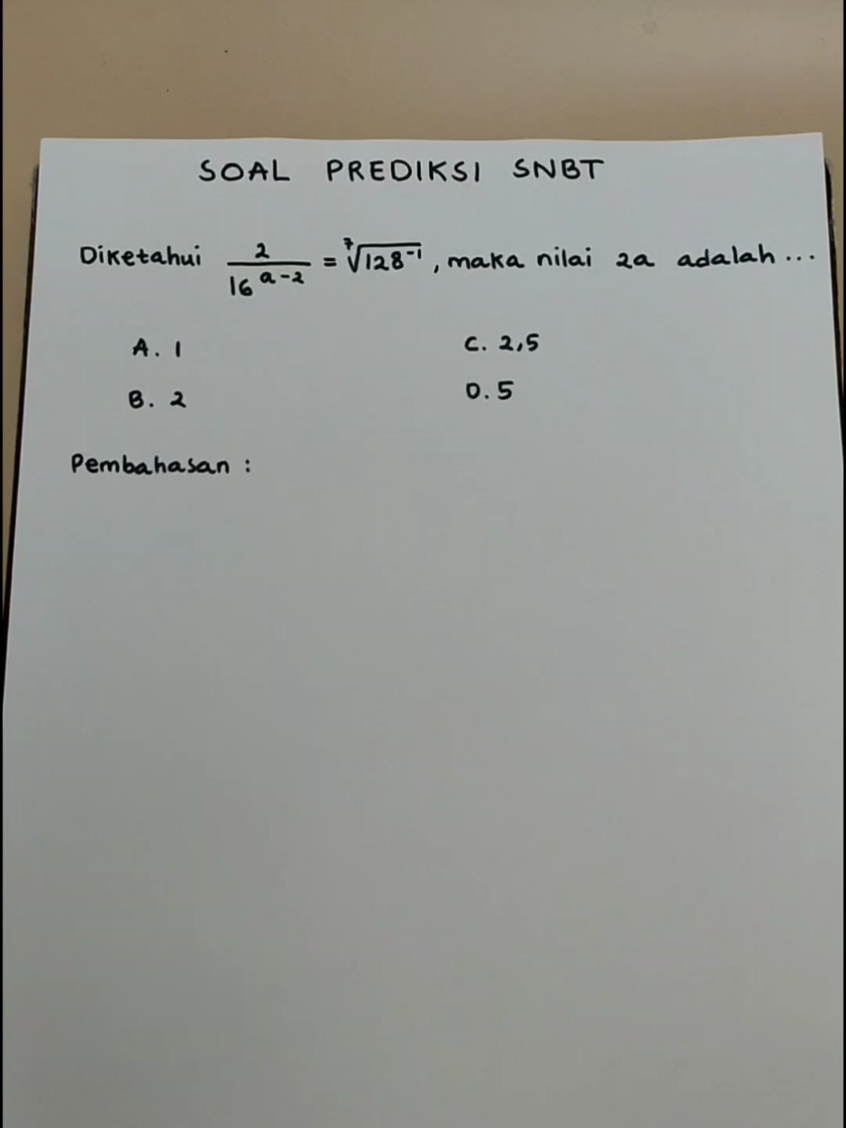 SOAL PREDIKSI SNBT
Diketahui 2/16^(a-2) = ⁷√(128⁻¹), maka nilai 2a adalah ...
A. 1 C. 2,5
B. 2 D. 5
Pembahasan :